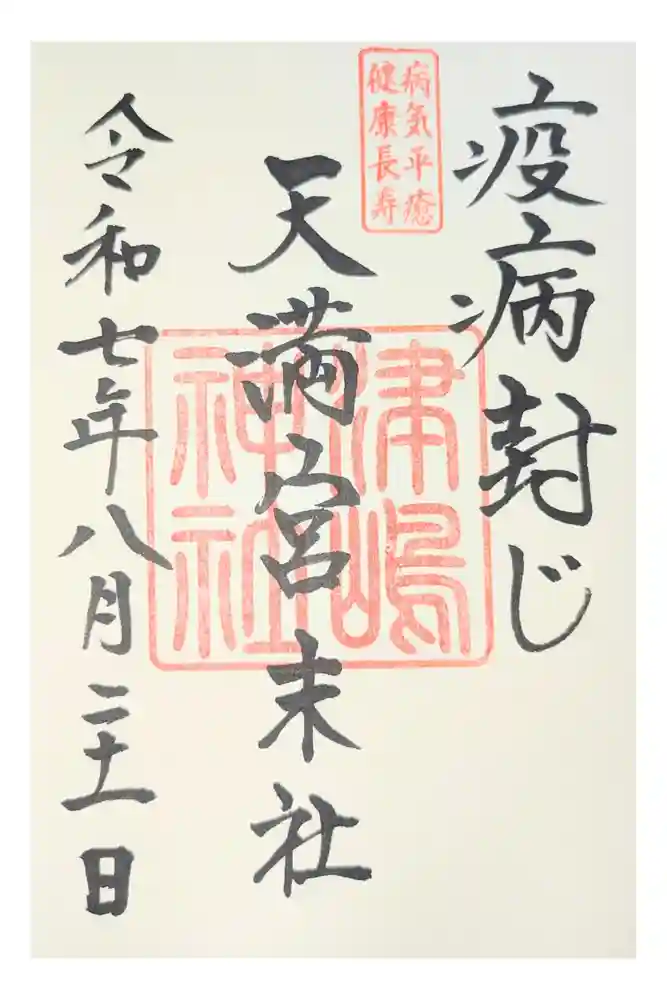 疫病封じ
病気平癒
健康長寿
天満宮末社
津嶋
神社
令和七年八月二十一日